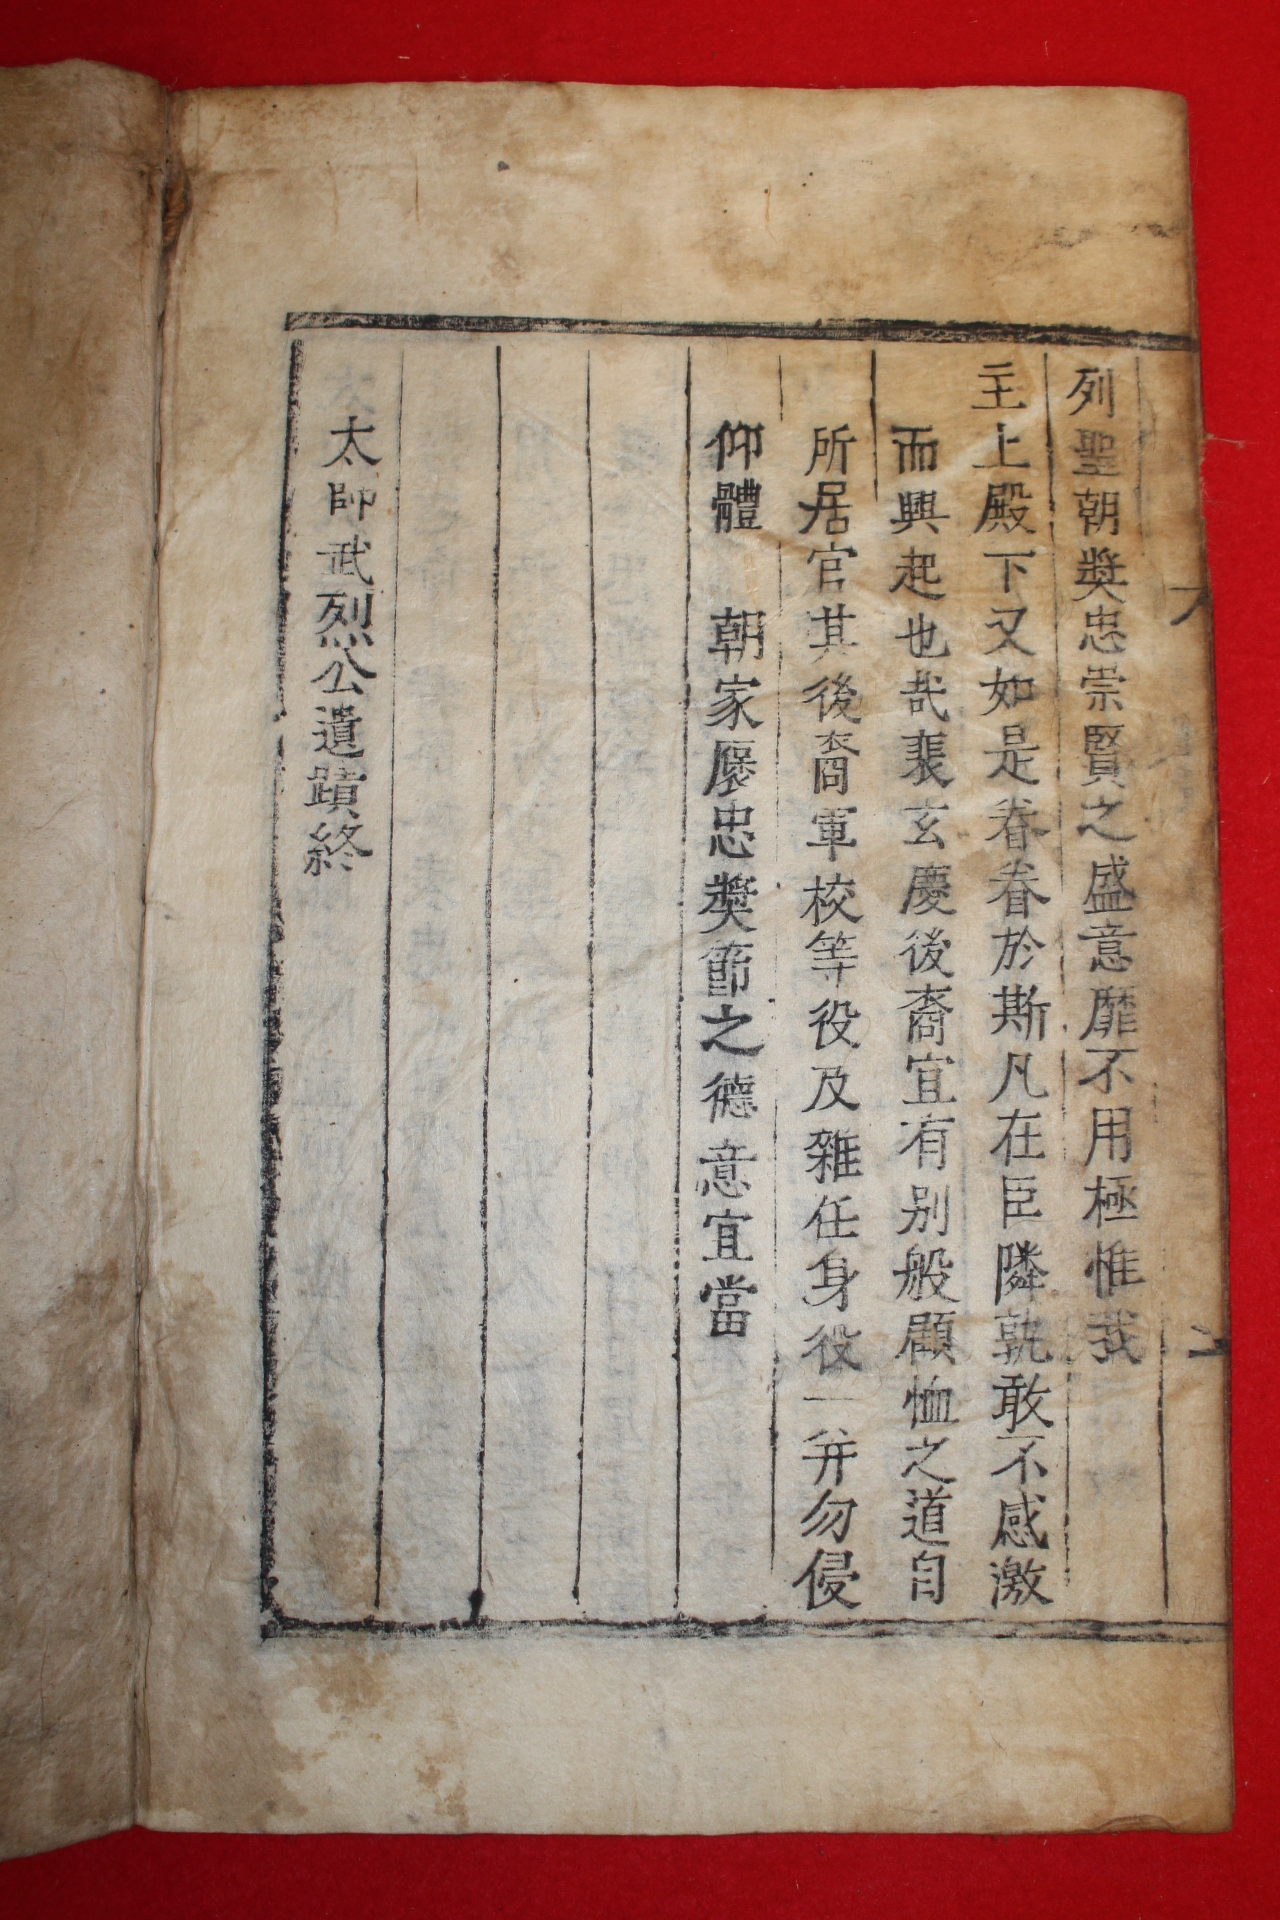 列聖朝奬忠崇賢之盛意靡不用極惟我
主上殿下又如是眷眷於斯凡在臣隣孰敢不感激
而興起也哉裴玄慶後裔宜有别般顧恤之道自
所居官其後裔軍校等役及雜任身役一并勿侵
仰體 朝家褒忠奬節之德意宜當
太師武烈公遺蹟終